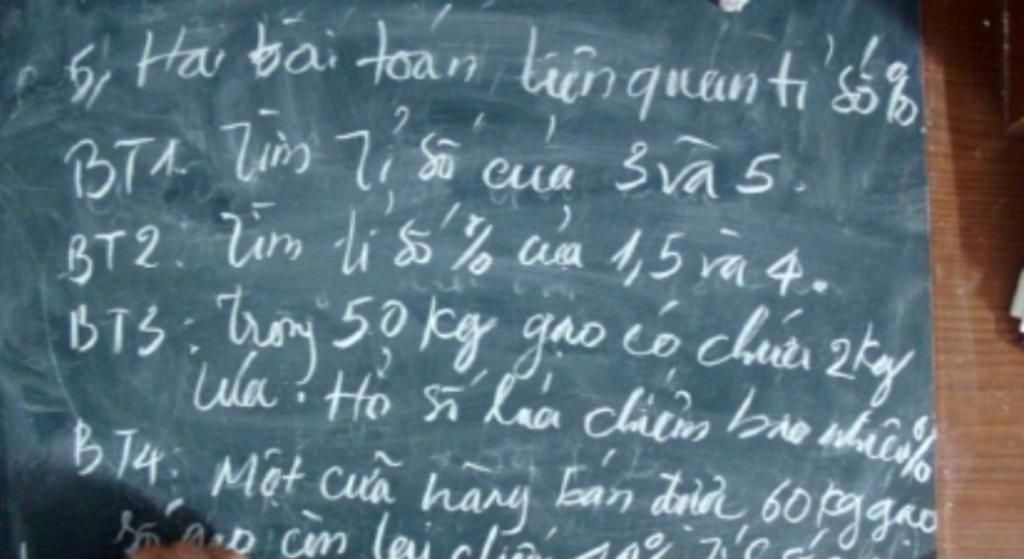 5, Hai bài toán liên quan tỉ số %.
BT1. Tìm Tỉ số của 3 và 5.
BT2. Tìm tỉ số % của 1,5 và 4.
BT3: Trong 50 kg gạo có chứa 2kg
lúa. Hỏi số lúa chiếm bao nhiêu %
BT4: Một cửa hàng bán được 60 kg gạo
số gạo còn lại